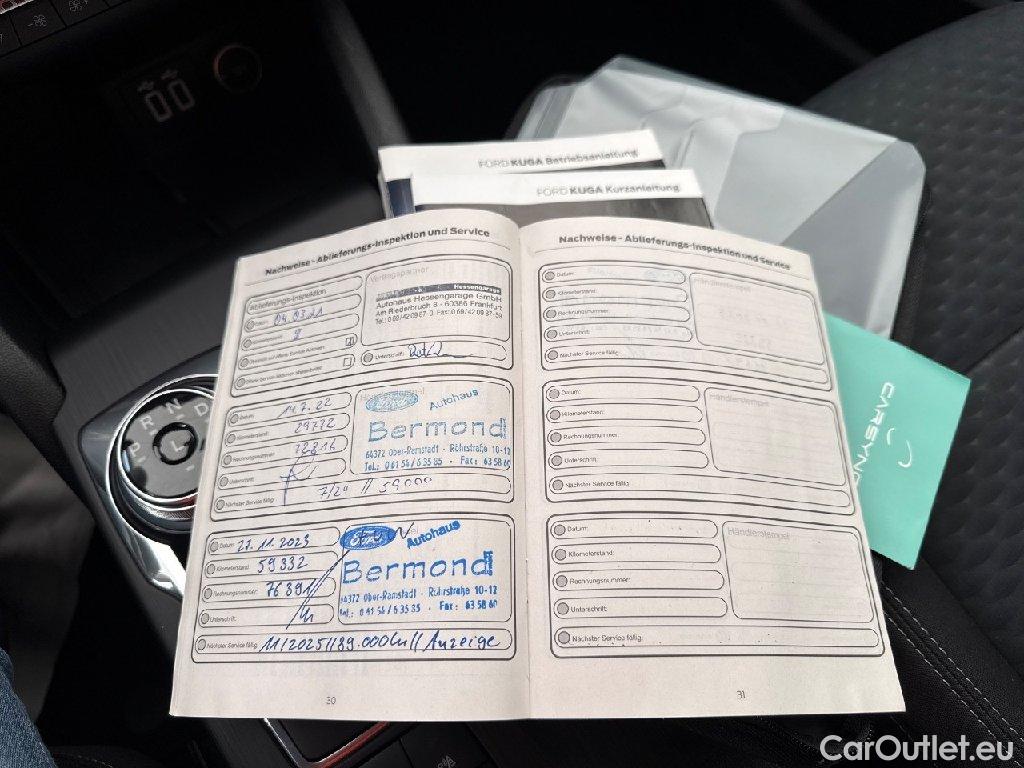 FORD KUGA Betriebsanleitung
FORD KUGA Kurzanleitung
Nachweise - Ablieferungs-Inspektion und Service
Ablieferungs-Inspektion
Datum: 04.03.21
Vertragspartner
Hessengarage
Autohaus Hessengarage GmbH
Am Riederbruch 8 - 60386 Frankfurt
Unterschrift:
Datum: 14.7.22
Kilometerstand: 29732
Rechnungsnummer:
Unterschrift:
Nächster Service fällig:
Ford
Autohaus
Bermond
64372 Ober-Ramstadt - Röhrstraße 10-12
Tel.: 0 61 54 / 6 35 85 - Fax: 63 58 60
Datum: 27.11.2023
Kilometerstand: 59332
Rechnungsnummer: 76891
Unterschrift:
Nächster Service fällig: 11/2025//89.000km//Anzeige
Ford
Autohaus
Bermond
64372 Ober-Ramstadt - Röhrstraße 10-12
Tel.: 0 61 54 / 6 35 85 - Fax: 63 58 60
30
Nachweise - Ablieferungs-Inspektion und Service
Datum:
Kilometerstand:
Rechnungsnummer:
Unterschrift:
Nächster Service fällig:
Händlerstempel
Datum:
Kilometerstand:
Rechnungsnummer:
Unterschrift:
Nächster Service fällig:
Händlerstempel
Datum:
Kilometerstand:
Rechnungsnummer:
Unterschrift:
Nächster Service fällig:
Händlerstempel
31
P R N D L
CarOutlet.eu